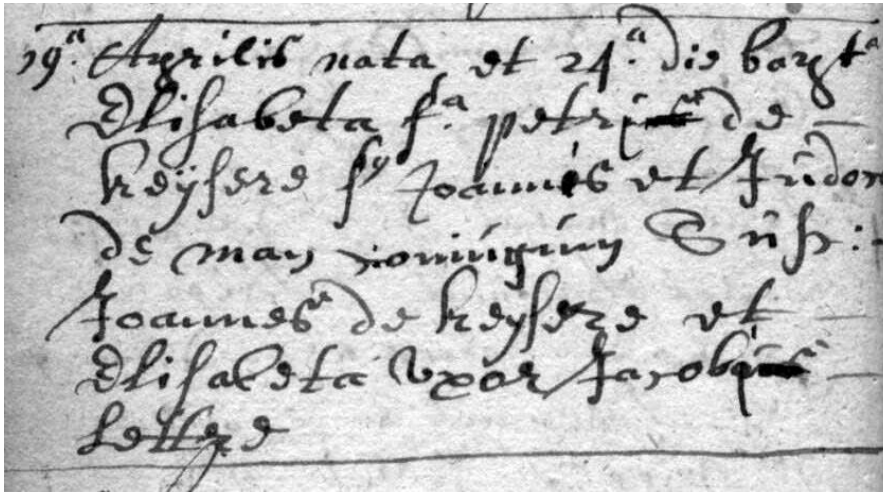 19.ª Aprilis nata et 24.ª die bapt.ª
Elisabeta f.ª petri de
keysere fy Joannis et Judo
de man coniugum Susc:
Joannes de keysere et
Elisabeta uxor Jacobi
Lettere